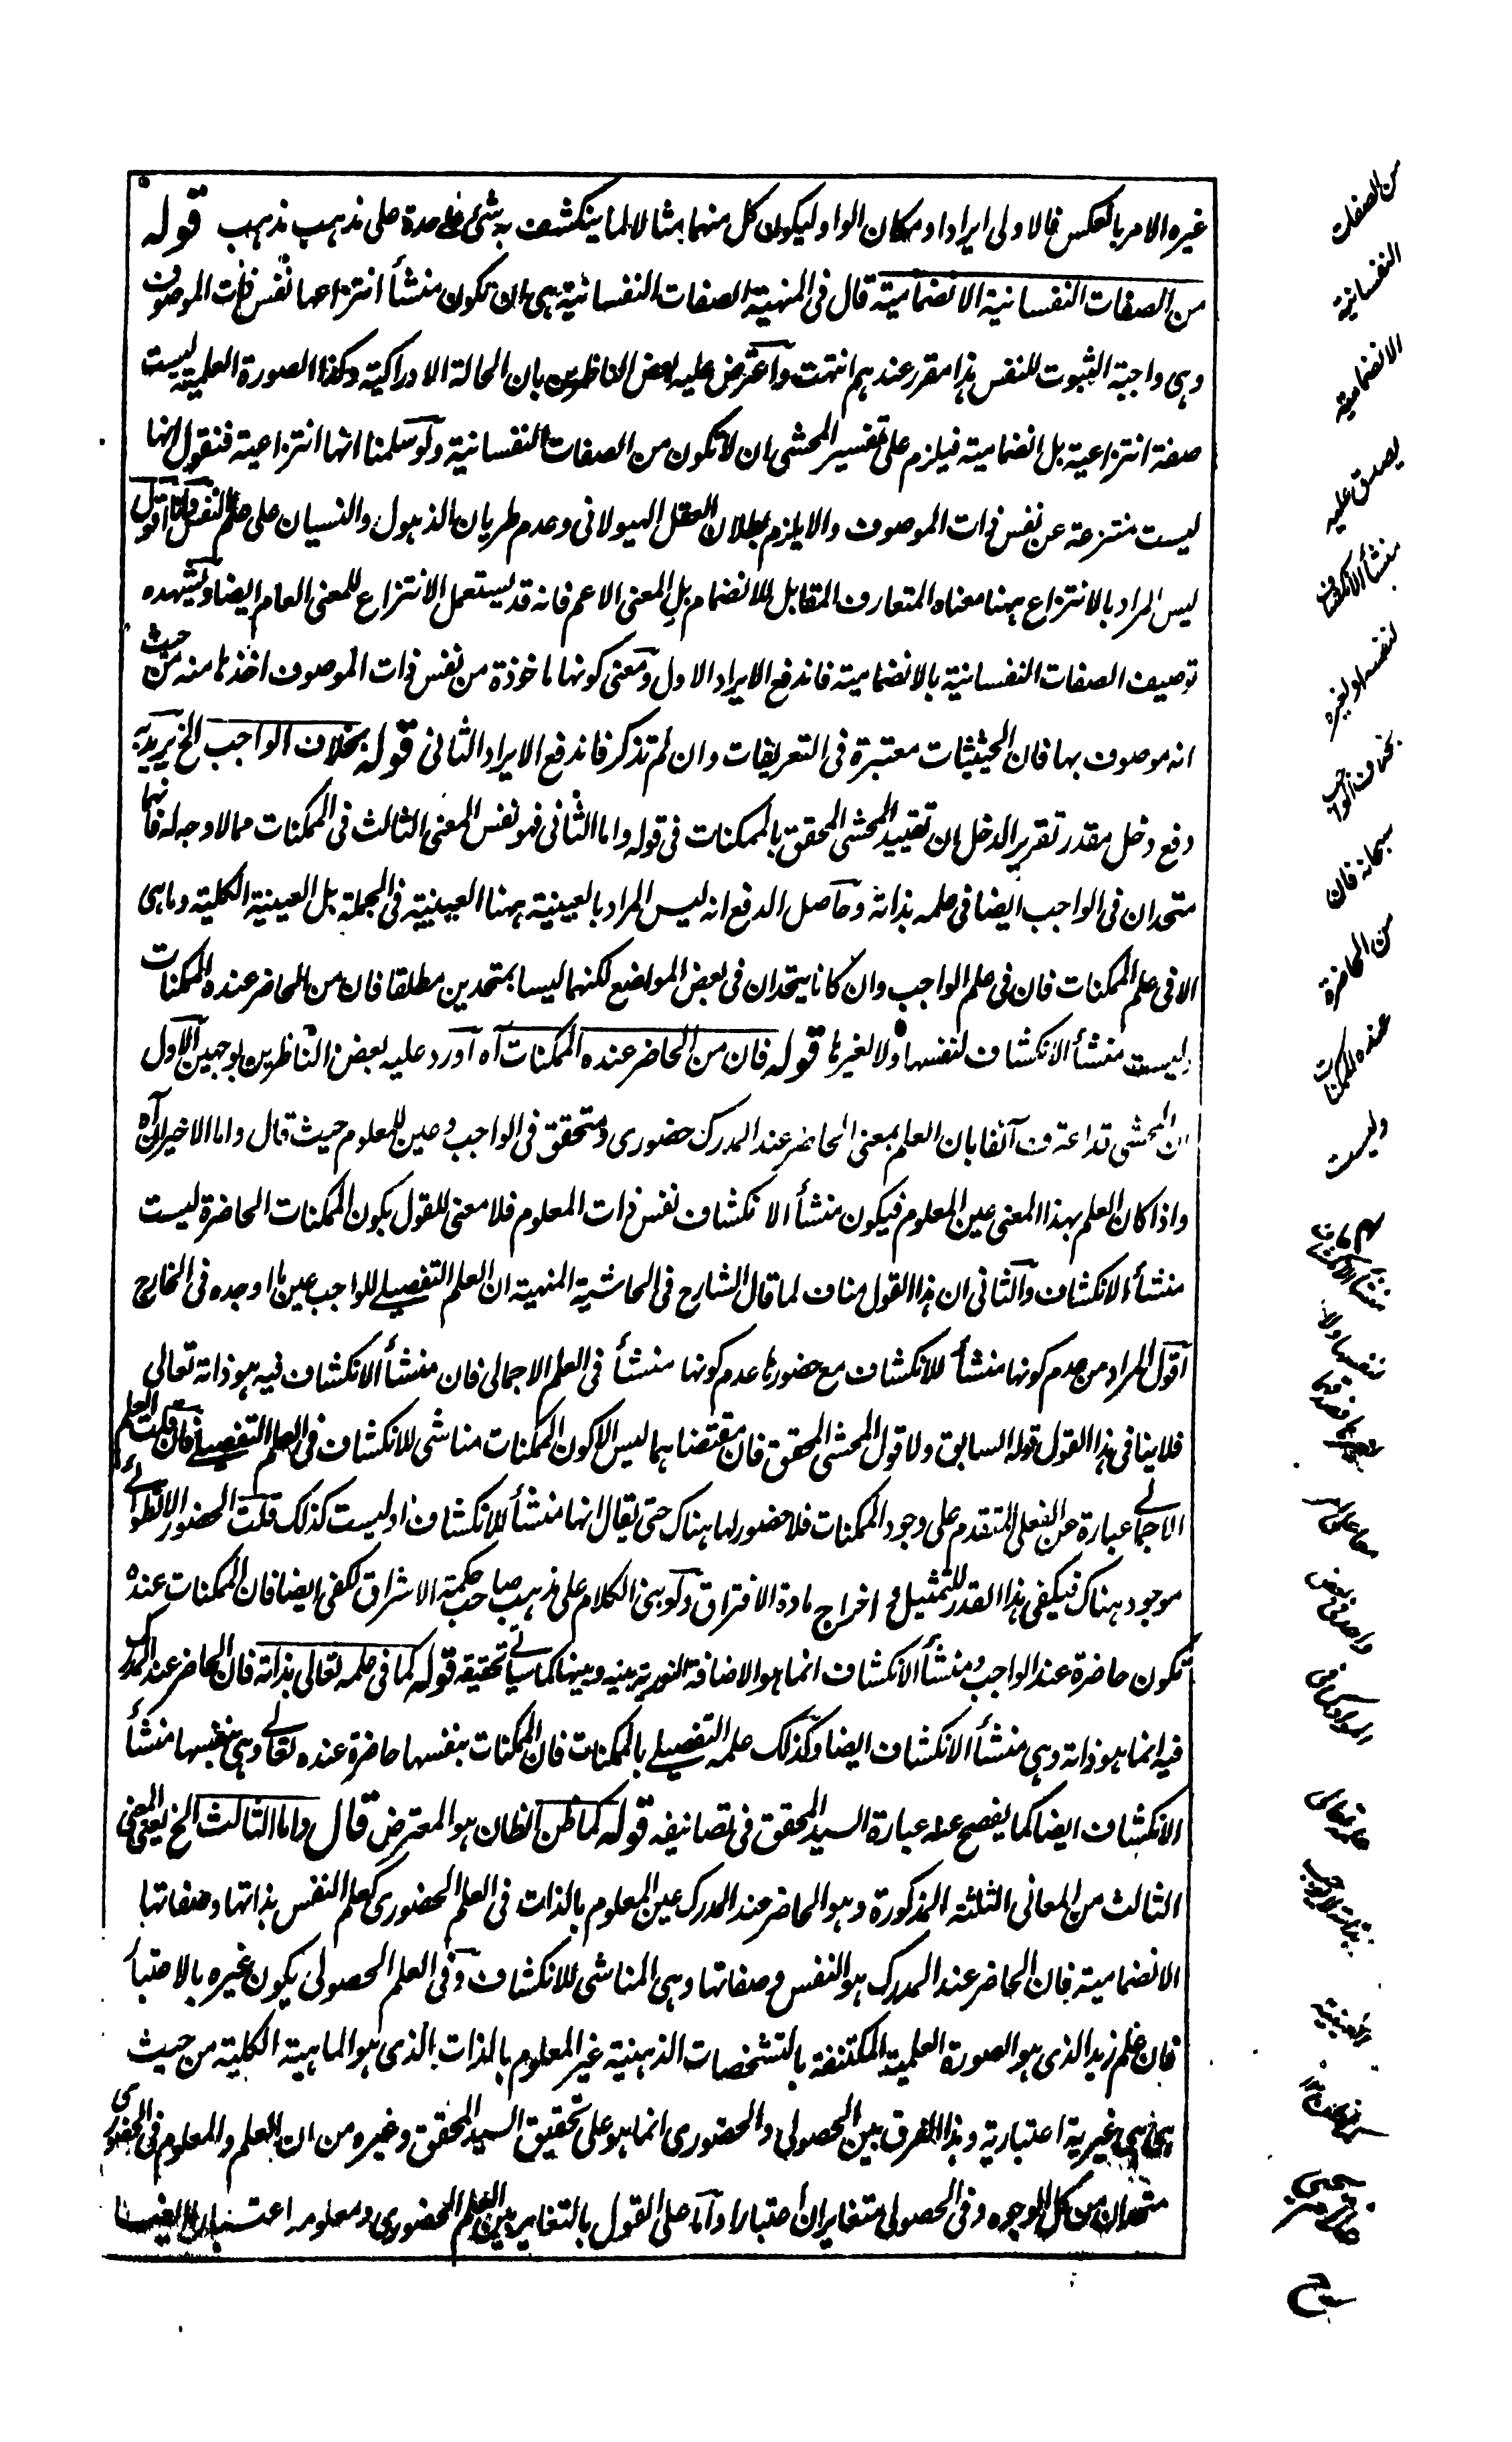 غيره الامر بالعكس فالاولى ايراد او مكان الواو ليكون كل منهما مثالا لما ينكشف به شئ على حدة على مذهب مذهب قوله
من الصفات النفسانية الانضمامية قال فى المنهية الصفات النفسانية هى ان تكون منشأ انتزاعها نفس ذات الموصوف
وهى واجبة الثبوت للنفس هذا مقرر عندهم انتهت واعترض عليه بعض الناظرين بان الحالة الادراكية وكذا الصورة العلمية ليست
صفة انتزاعية بل انضمامية فيلزم على تفسير المحشى ان لا تكون من الصفات النفسانية ولو سلمنا انها انتزاعية فنقول انها
ليست منتزعة عن نفس ذات الموصوف والا يلزم بطلان العقل الهيولانى وعدم طريان الذهول والنسيان على علم النفس وانا اقول
ليس المراد بالانتزاع ههنا معناه المتعارف المقابل للانضمام بل المعنى الاعم فانه قد يستعمل الانتزاع للمعنى العام ايضا ويشهده
توصيف الصفات النفسانية بالانضمامية فاندفع الايراد الاول ومعنى كونها ماخوذة من نفس ذات الموصوف اخذها منه من حيث
انه موصوف بها فان الحيثيات معتبرة فى التعريفات وان لم تذكر فاندفع الايراد الثانى قوله بخلاف الواجب الخ يريد به
دفع دخل مقدر تقرير الدخل ان تقييد المحشى المحقق بالممكنات فى قوله واما الثانى فهو نفس المعنى الثالث فى الممكنات مما لا وجه له فانهما
متحدان فى الواجب ايضا فى علمه بذاته وحاصل الدفع انه ليس المراد بالعينية ههنا العينية فى الجملة بل العينية الكلية وما هى
الا فى علم الممكنات فان فى علم الواجب وان كانا يتحدان فى بعض المواضع لكنهما ليسا بمتحدين مطلقا فان من الحاضر عنده الممكنات
وليست منشأ الانكشاف لنفسها ولا لغيرها قوله فان من الحاضر عنده الممكنات آه آورد عليه بعض الناظرين بوجهين الاول
ان المحشى قد اعترف آنفا بان العلم بمعنى الحاضر عند المدرك حضورى ومتحقق فى الواجب وعين للمعلوم حيث قال واما الاخيران آه
واذا كان العلم بهذا المعنى عين المعلوم فيكون منشأ الانكشاف نفس ذات المعلوم فلا معنى للقول بكون الممكنات الحاضرة ليست
منشأ الانكشاف والثانى ان هذا القول مناف لما قال الشارح فى الحاشية المنهية ان العلم التفصيلے للواجب عين ما اوجده فى الخارج
اقول المراد من عدم كونها منشأ للانكشاف مع حضورها عدم كونها منشأ فى العلم الاجمالى فان منشأ الانكشاف فيه هو ذاته تعالى
فلا ينافى هذا القول قوله السابق ولا قول المحشى المحقق فان مقتضاهما ليس الا كون الممكنات مناشى للانكشاف فى العلم التفصيلے فان قلت العلم
الاجمالے عبارة عن الفعلى المتقدم على وجود الممكنات فلا حضور لها هناك حتى يقال انها منشأ للانكشاف او ليست كذلك قلت الحضور الانطوائے
موجود هناك فيكفى هذا القدر للتمثيل و اخراج مادة الافتراق ولو بنى الكلام على مذهب صاحب حكمة الاشراق لكفى ايضا فان الممكنات عنده
تكون حاضرة عند الواجب ومنشأ الانكشاف انما هو الاضافة النورية بينه وبينها كما سيأتے تحقيقه قوله كما فى علمه تعالى بذاته فان الحاضر عند المدرك
فيه انما هو ذاته وهى منشأ الانكشاف ايضا وكذلك علمه التفصيلے بالممكنات فان الممكنات بنفسها حاضرة عنده تعالے وهى بنفسها منشأ
الانكشاف ايضا كما يفصح عنه عبارة السيد المحقق فى تصانيفه قوله كما ظن الظان هو المعترض قال واما الثالث الخ يعنى المعنى
الثالث من المعانى الثلثة المذكورة وهو الحاضر عند المدرك عين المعلوم بالذات فى العلم الحضورى كعلم النفس بذاتها وصفاتها
الانضمامية فان الحاضر عند المدرك هو النفس وصفاتها وهى المناشى للانكشاف وفى العلم الحصولى يكون غيره بالاعتبار
فان علم زيد الذى هو الصورة العلمية المكتنفة بالتشخصات الذهنية غير المعلوم بالذات الذى هو الماهية الكلية من حيث
هى هى غيرية اعتبارية وهذا الفرق بين الحصولى والحضورى انما هو على تحقيق السيد المحقق وغيره من ان العلم والمعلوم فى الحضورى
متحدان من كل الوجوه وفى الحصولى متغايران اعتبارا واما على القول بالتغاير بين العلم الحضورى ومعلومه اعتبارا ايضا
من الصفات
النفسانية
الانضمامية
يصدق عليه
منشأ الانكشاف
لنفسه او لغيره
بخلاف الواجب
سبحانه فان
من الحاضرة
عنده الممكنات
وليست
منشأ الانكشاف
لنفسها ولا